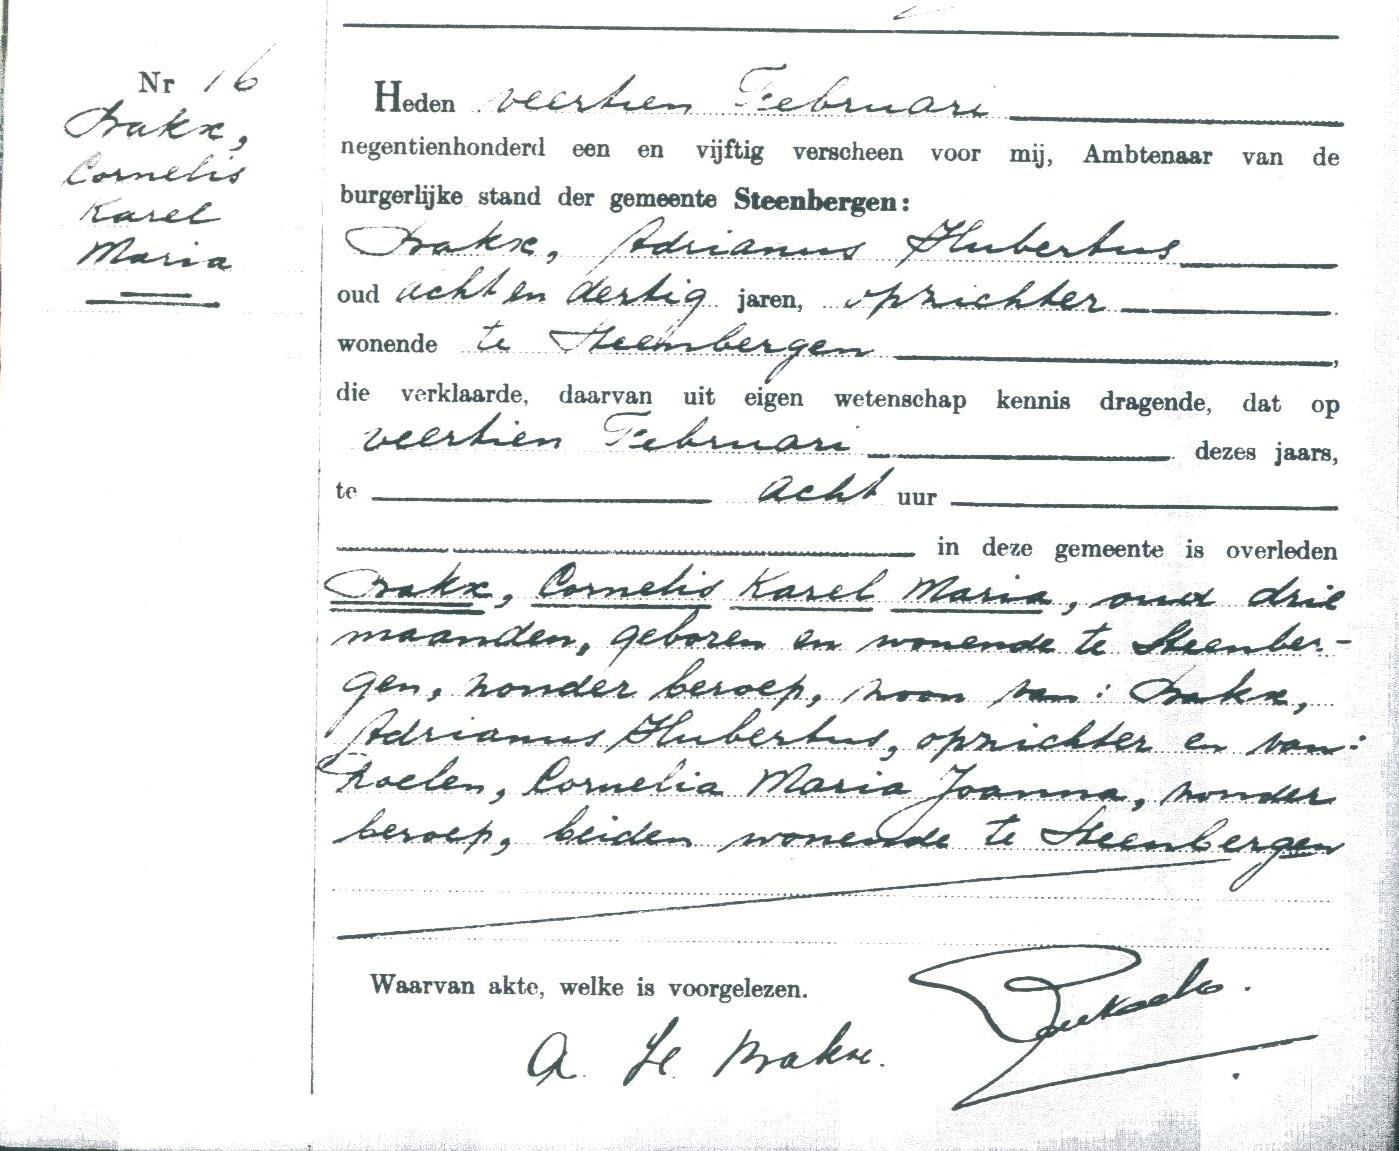 Nr 16
Bakx,
Cornelis
Karel
Maria
Heden veertien Februari
negentienhonderd een en vijftig verscheen voor mij, Ambtenaar van de
burgerlijke stand der gemeente Steenbergen:
Bakx, Adrianus Hubertus
oud acht en dertig jaren, opzichter
wonende te Steenbergen,
die verklaarde, daarvan uit eigen wetenschap kennis dragende, dat op
veertien Februari dezes jaars,
te acht uur
in deze gemeente is overleden
Bakx, Cornelis Karel Maria, oud drie
maanden, geboren en wonende te Steenber-
gen, zonder beroep, zoon van: Bakx,
Adrianus Hubertus, opzichter en van:
Roelen, Cornelia Maria Joanna, zonder
beroep, beiden wonende te Steenbergen
Waarvan akte, welke is voorgelezen.
A. H. Bakx.